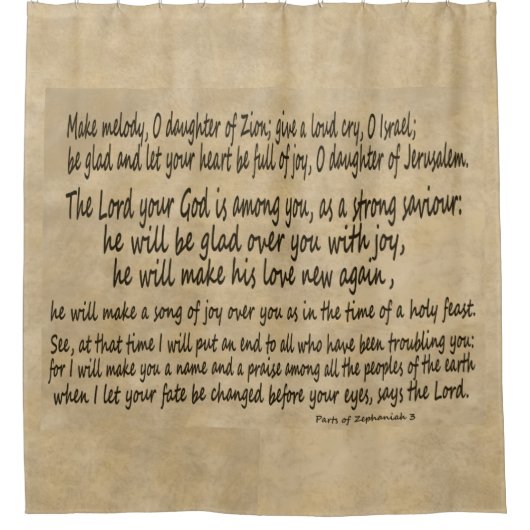 Make melody, O daughter of Zion; give a loud cry, O Israel;
be glad and let your heart be full of joy, O daughter of Jerusalem.
The Lord your God is among you, as a strong saviour:
he will be glad over you with joy,
he will make his love new again,
he will make a song of joy over you as in the time of a holy feast.
See, at that time I will put an end to all who have been troubling you:
for I will make you a name and a praise among all the peoples of the earth
when I let your fate be changed before your eyes, says the Lord.
Parts of Zephaniah 3